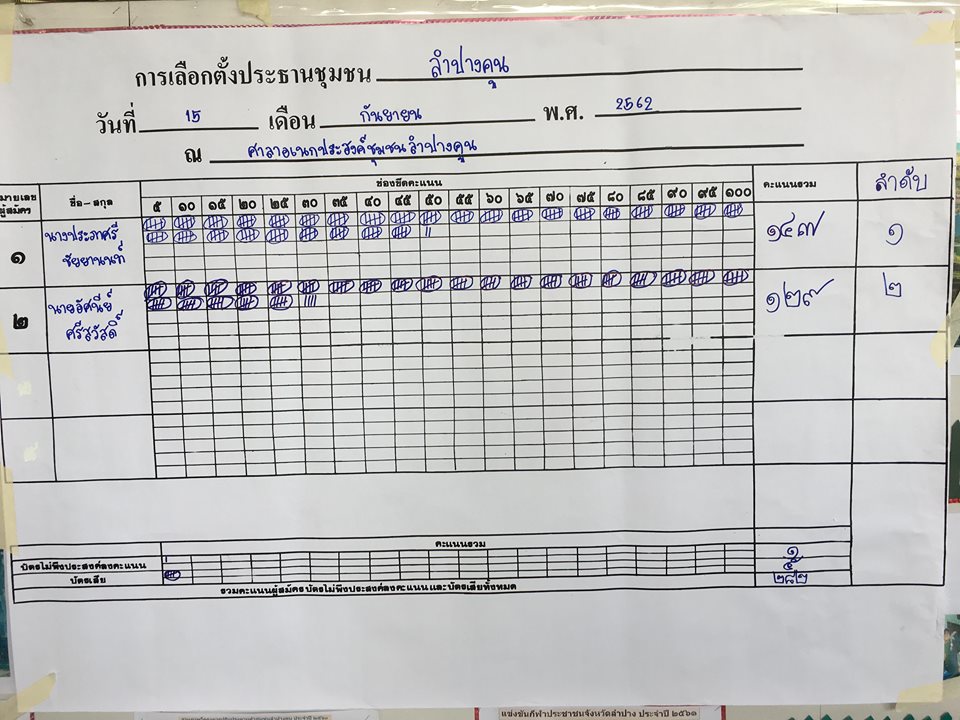 การเลือกตั้งประธานชุมชน ลำปางคุน
วันที่ 15 เดือน กันยายน พ.ศ. 2562
ณ ศาลาอเนกประสงค์ชุมชนลำปางคุน
หมายเลขผู้สมัคร ชื่อ-สกุล ช่องขีดคะแนน คะแนนรวม ลำดับ
๕ ๑๐ ๑๕ ๒๐ ๒๕ ๓๐ ๓๕ ๔๐ ๔๕ ๕๐ ๕๕ ๖๐ ๖๕ ๗๐ ๗๕ ๘๐ ๘๕ ๙๐ ๙๕ ๑๐๐
๑ นางประภาศรี ๑๔๗ ๑
ชัยยานนท์
๒ นายอัศนีย์ ๑๒๗ ๒
ศรีสวัสดิ์
คะแนนรวม
บัตรไม่พึงประสงค์ลงคะแนน ๑
บัตรเสีย ๕
รวมคะแนนผู้สมัคร บัตรไม่พึงประสงค์ลงคะแนน และบัตรเสียทั้งหมด
แข่งขันกีฬาประชาชนจังหวัดลำปาง ประจำปี ๒๕๖๑